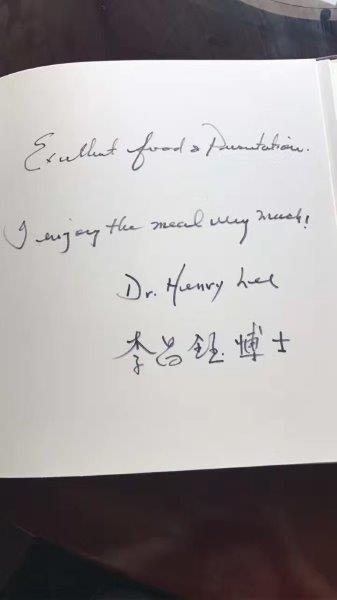 Excellent food & Presentation.
I enjoy the meal very much!
Dr. Henry Lee
李昌鈺博士